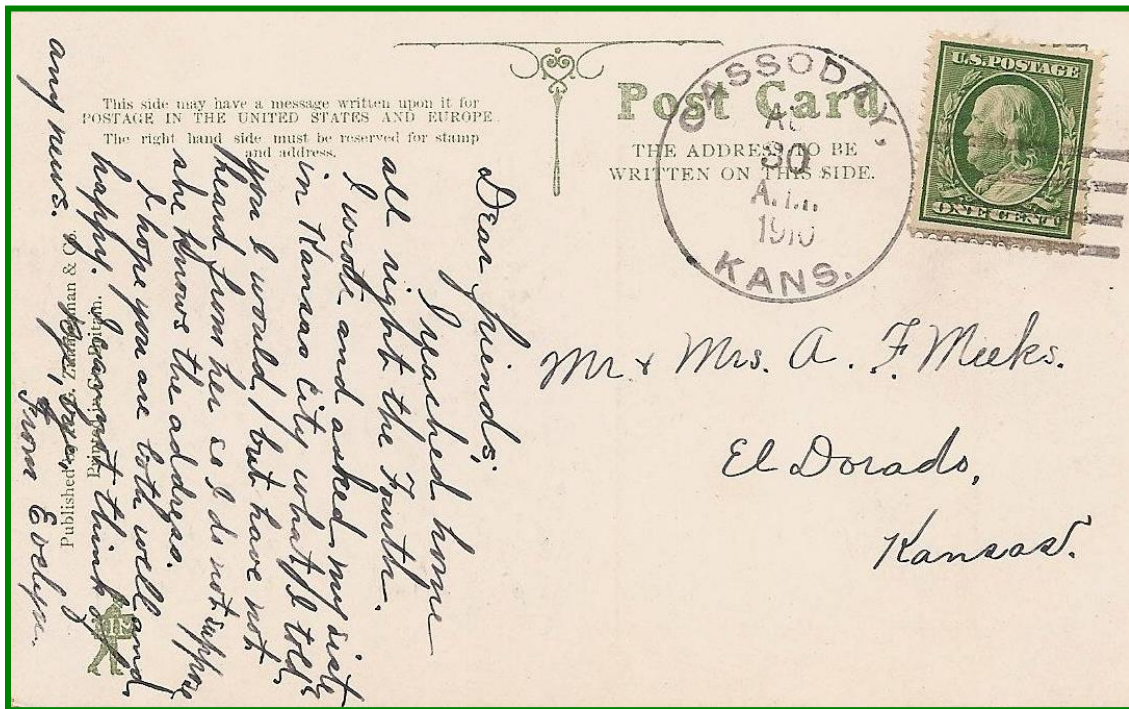 This side may have a message written upon it for
POSTAGE IN THE UNITED STATES AND EUROPE.
The right hand side must be reserved for stamp
and address.
Post Card
THE ADDRESS TO BE
WRITTEN ON THIS SIDE.
CASSODAY,
30
A.M.
1910
KANS.
U.S. POSTAGE
ONE CENT
Dear friends;
I reached home
all right the Fourth.
I wrote and asked my sister
in Kansas City what I told
you I would, but have not
heard from her so I do not suppose
she knows the address.
I hope you are both well and
happy. I cannot think of
any news.
From Evelyn.
Mr & Mrs. A. F. Meeks.
El Dorado,
Kansas.
Published by
& Co.
Printed in Gt. Britain.